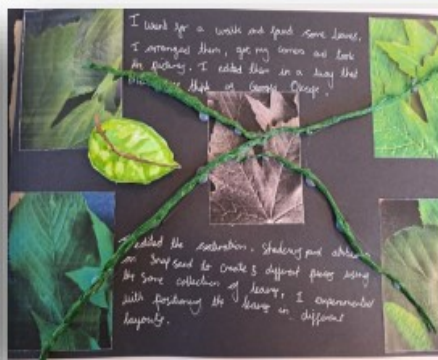 I went for a walk and found some leaves,
I arranged them, got my camera and took
the pictures. I edited them in a way that
think of Georgia Okeefe.
I edited the saturation, shadows and
on Snapseed to create 3 different pieces using
the same collection of leaves, I experimented
with positioning the leaves in different
layouts.